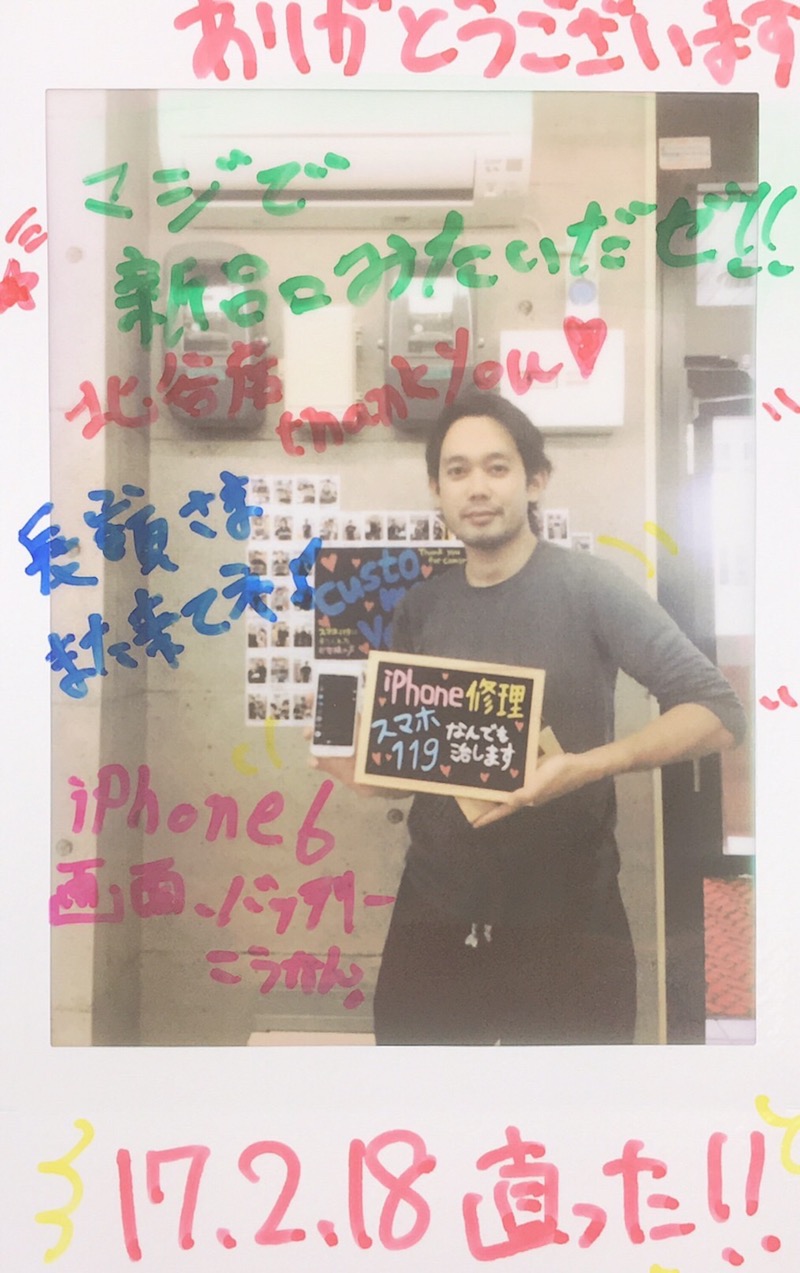 ありがとうございます
マジで
新品みたいだぜ!!
北谷店
thankyou♥
さま
また来てネ♪
Thank you
Custo
iPhone修理
スマホ
119
なんでも
治します
iPhone6
画面、バッテリー
こうかん
17.2.18 直った!!